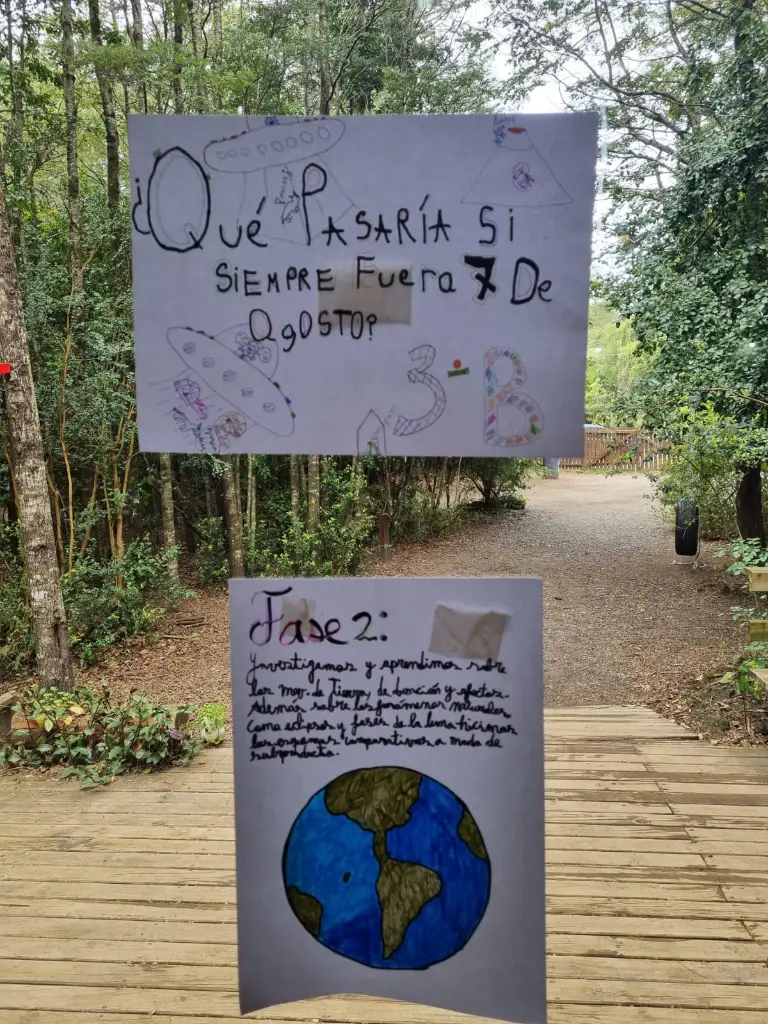 ¿Qué Pasaría Si
Siempre Fuera 7 De
Agosto?
3-B
Fase 2:
Ynvestigamos y aprendimos sobre
los mov. de Tierra, de duración y efectos.
Además sobre los fenómenos naturales
como eclipses y fases de la luna hicimos
los organos comparativos a modo de
subproducto.